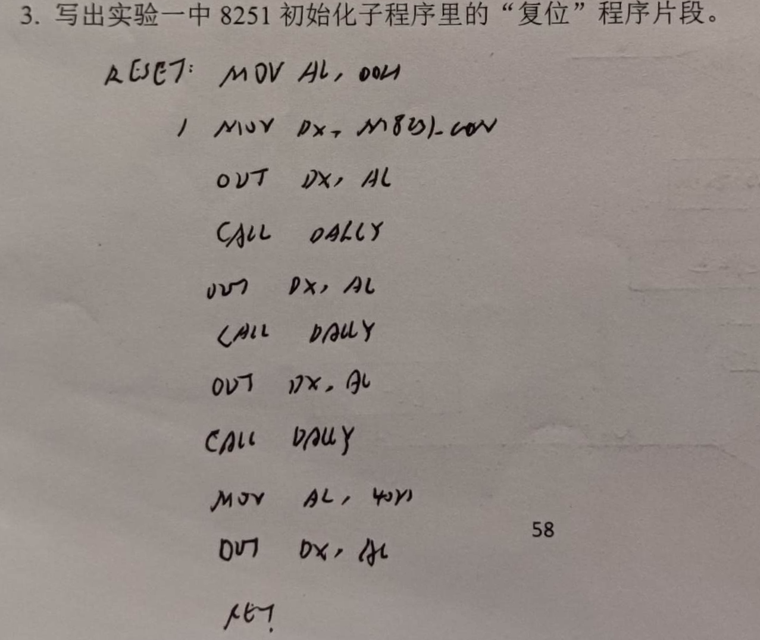 3. 写出实验一中 8251 初始化子程序里的“复位”程序片段。
RESET: MOV AL, 00H
MOV DX, M8251_CON
OUT DX, AL
CALL DALLY
OUT DX, AL
CALL DALLY
OUT DX, AL
CALL DALLY
MOV AL, 40H
OUT DX, AL
RET
58